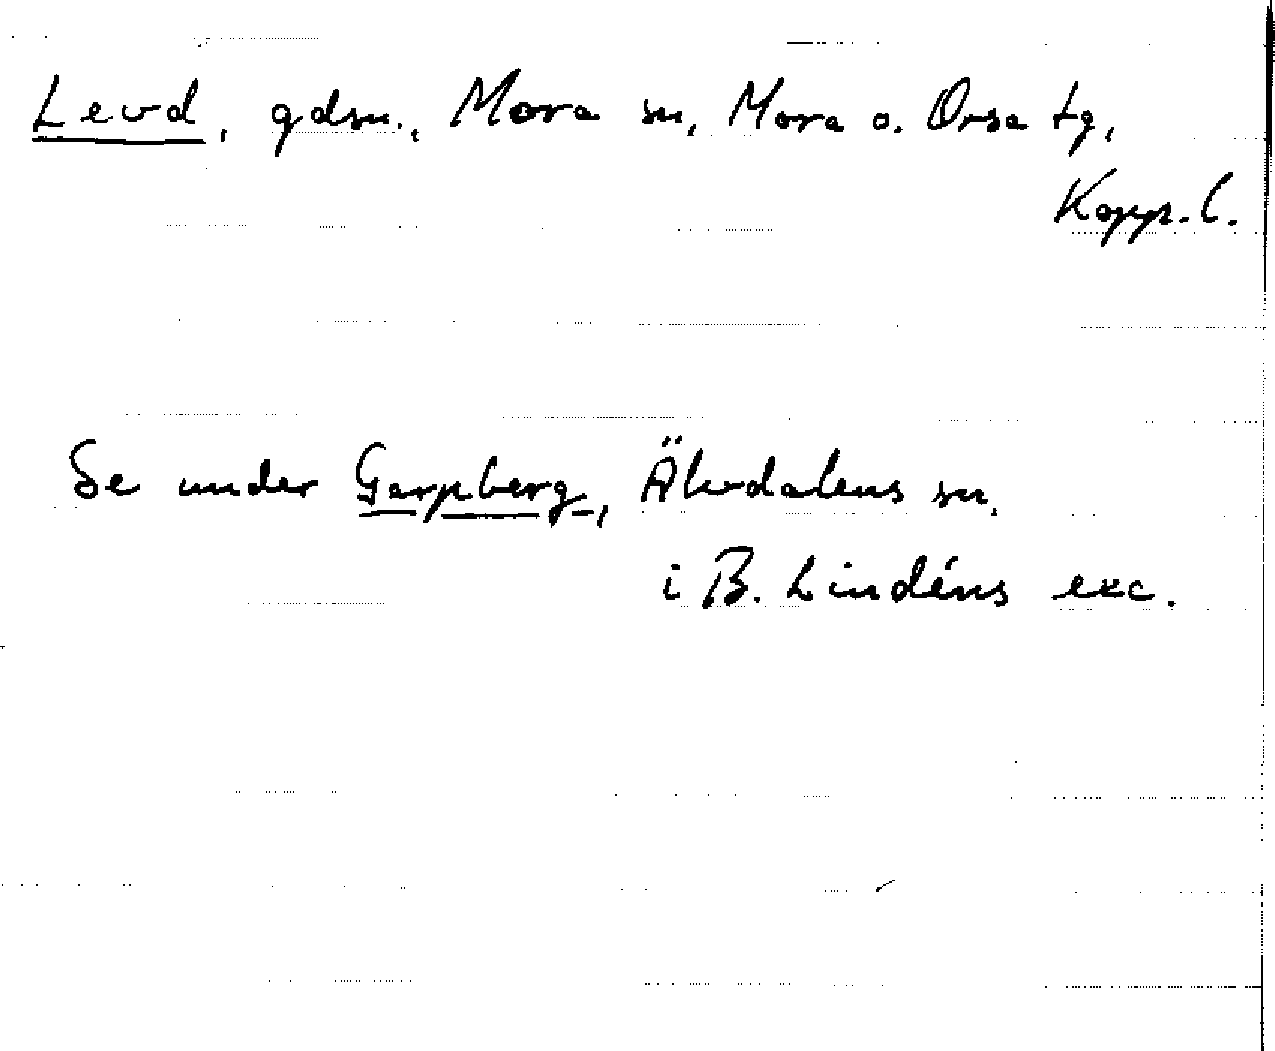 Levd, gdsn., Mora sn, Mora o. Orsa tg,
Kopp. l.
Se under Garpberg, Älvdalens sn.
i B. Lindéns exc.